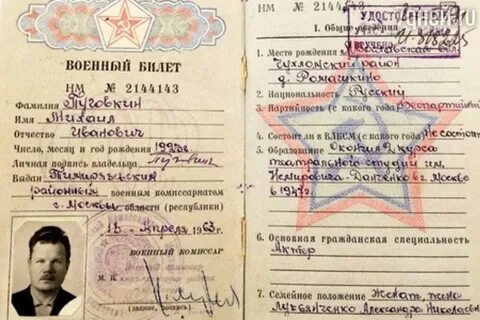 ВОЕННЫЙ БИЛЕТ
НМ № 2144143
Фамилия Пуговкин
Имя Михаил
Отчество Иванович
Число, месяц и год рождения 1923г.
Личная подпись владельца
Выдан Тимирязевским
районным военным комиссариатом
г. Москвы области (республики)
18 апреля 1963 г.
ВОЕННЫЙ КОМИССАР
М. П.
(звание, подпись)
НМ № 2144143
I. Общие сведения
УДОСТОВЕ
ВРУЧЕНО
1. Место рождения обл.
Чухломский район
д. Рамешки
2. Национальность Русский
3. Партийность (с какого года) беспартийный
4. Состоял ли в ВЛКСМ (с какого года) Не состоял
5. Образование Окончил 2 курса
театральной студии им.
Немировича-Данченко в г. Москва
в 1947г.
6. Основная гражданская специальность
Актер
7. Семейное положение Женат, жена
Лукьянченко Александра Николаевна